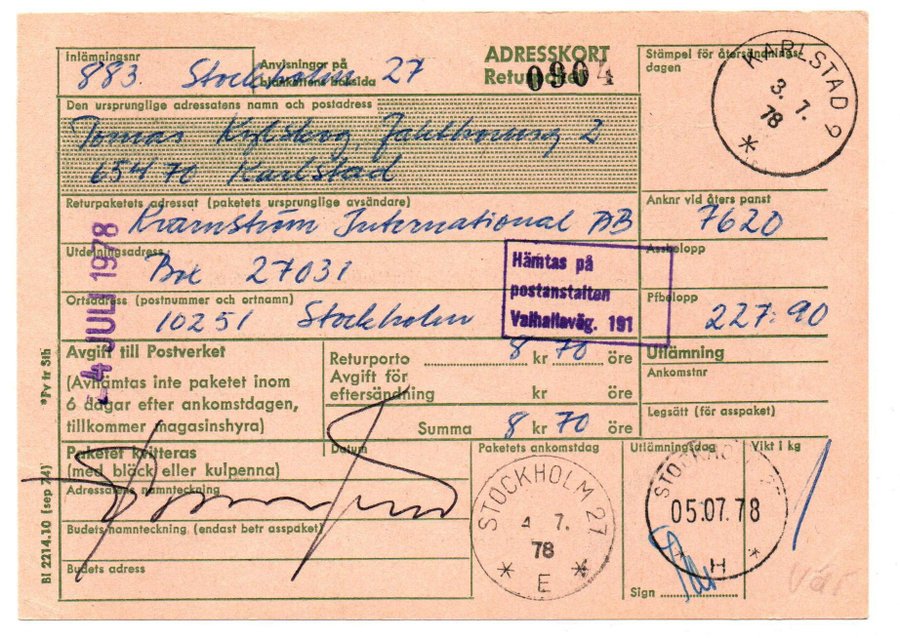 Inlämningsnr
883. Stockholm 27
Anvisningar på
blankettens baksida
ADRESSKORT
Returpaket
0904
Stämpel för återsändnings-
dagen
KARLSTAD 2
3. 7.
78
Den ursprunglige adressatens namn och postadress
Tomas
65470 Karlstad
Returpaketets adressat (paketets ursprunglige avsändare)
Kvarnström International AB
Anknr vid åters panst
7620
Utdelningsadress
Box 27031
Assbelopp
Hämtas på
postanstalten
Valhallaväg. 191
Ortsadress (postnummer och ortnamn)
10251 Stockholm
Pfbelopp
227:90
-4 JULI 1978
Avgift till Postverket
(Avhämtas inte paketet inom
6 dagar efter ankomstdagen,
tillkommer magasinshyra)
Returporto 8 kr 70 öre
Avgift för
eftersändning kr öre
Summa 8 kr 70 öre
Utlämning
Ankomstnr
Legsätt (för asspaket)
Paketet kvitteras
(med bläck eller kulpenna)
Datum
Adressatens namnteckning
Budets namnteckning (endast betr asspaket)
Budets adress
Paketets ankomstdag
STOCKHOLM 27
4 7.
78
* E *
Utlämningsdag
05.07.78
* H *
Sign
Vikt i kg
*Pv tr Sth
Bl 2214.10 (sep 74)